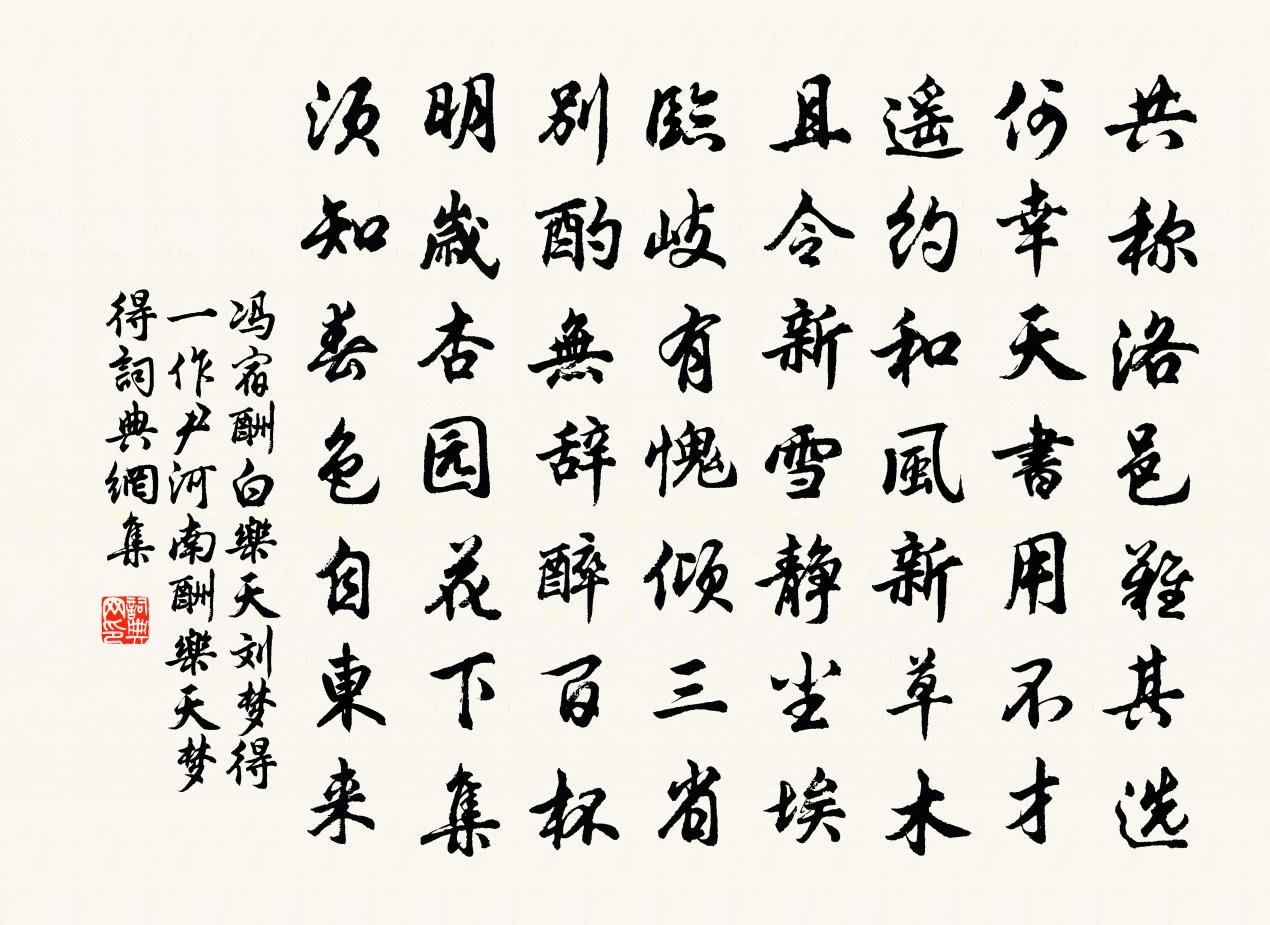 共称洛邑难其选
何幸天書用不才
遥约和風新草木
且令新雪静尘埃
臨岐有愧倾三省
别酌無辞醉百杯
明歲杏园花下集
须知春色自東来
冯宿酬白樂天刘梦得
一作尹河南酬樂天梦
得詞典網集
詞典网印